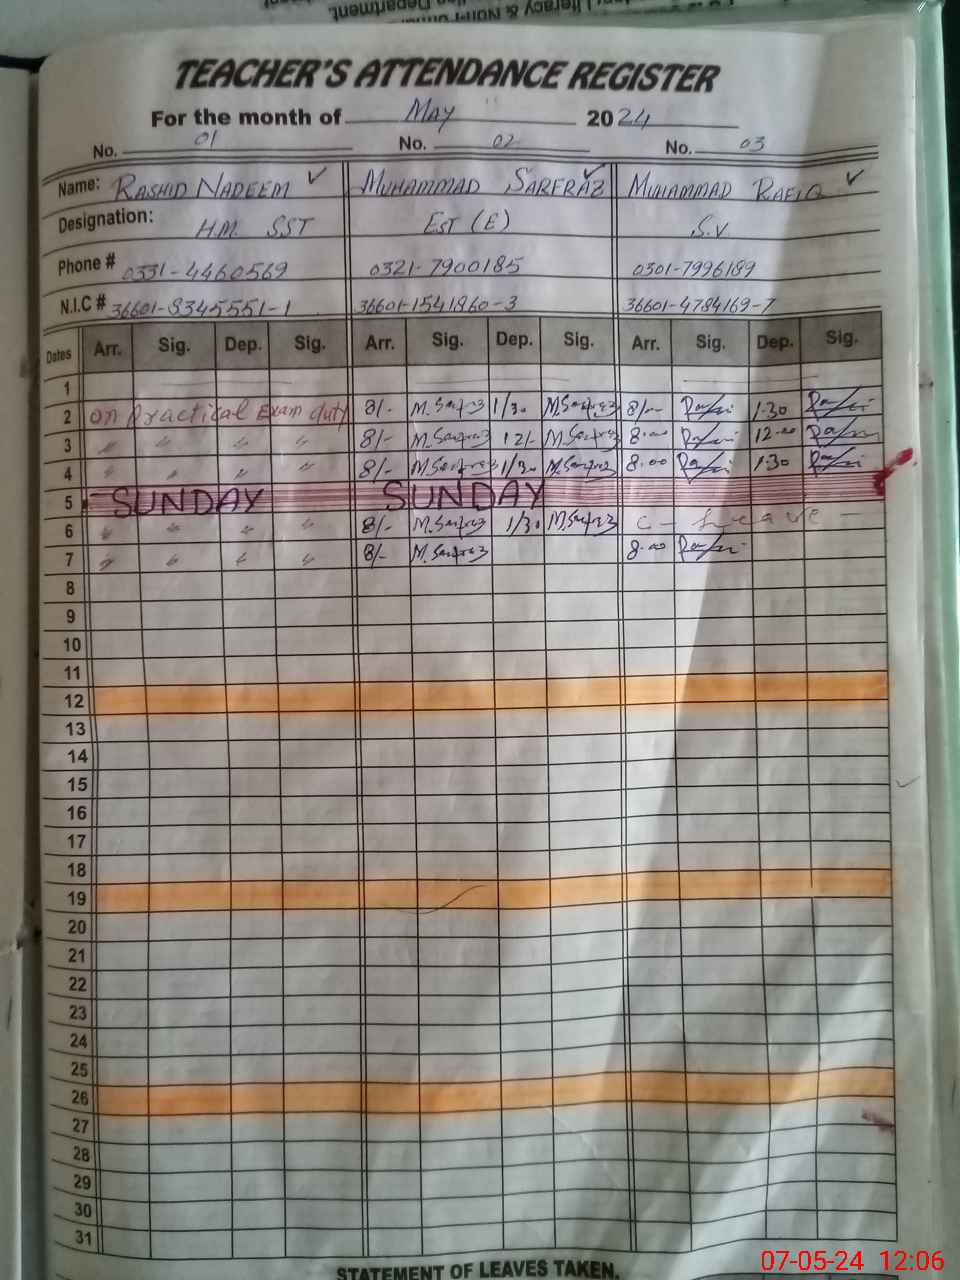 Literacy & Non-Formal
Department.
TEACHER'S ATTENDANCE REGISTER
For the month of May 2024
No. 01 No. 02 No. 03
Name: RASHID NADEEM ✓ MUHAMMAD SARFRAZ ✓ MUHAMMAD RAFIQ ✓
Designation: H.M. SST EST (E) S.V
Phone # 0331-4460569 0321-7900185 0301-7996189
N.I.C # 36601-8345551-1 36601-1541860-3 36601-4784169-7
Dates Arr. Sig. Dep. Sig. Arr. Sig. Dep. Sig. Arr. Sig. Dep. Sig.
1
2 on Practical Exam duty 8/- M.Sarfraz 1/30 M.Sarfraz 8/- 1.30
3 〃 〃 〃 〃 8/- M.Sarfraz 12/- M.Sarfraz 8.00 12.00
4 〃 〃 〃 〃 8/- M.Sarfraz 1/30 M.Sarfraz 8.00 1.30
5 SUNDAY SUNDAY
6 〃 〃 〃 〃 8/- M.Sarfraz 1/30 M.Sarfraz C - Leave -
7 〃 〃 〃 〃 8/- M.Sarfraz 8.00
8
9
10
11
12
13
14
15
16
17
18
19
20
21
22
23
24
25
26
27
28
29
30
31
STATEMENT OF LEAVES TAKEN.
07-05-24 12:06